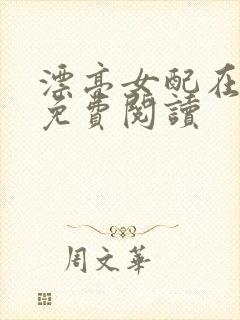 漂亮女配在
免費閱讀
周文華